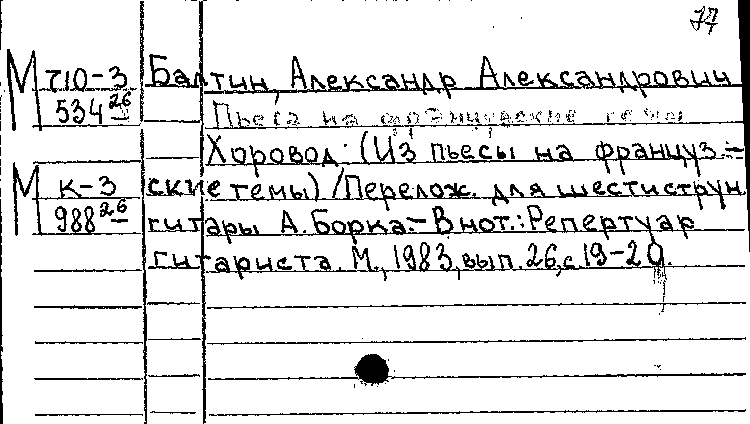 77
М 710-3 Балтин, Александр Александрович
534 26 Пьеса на французские темы
Хоровод: (Из пьесы на француз-
М К-3 ские темы) / Перелож. для шестиструн.
988 26 гитары А. Борка.- В нот.: Репертуар
гитариста. М., 1983, вып. 26, с. 19-20.